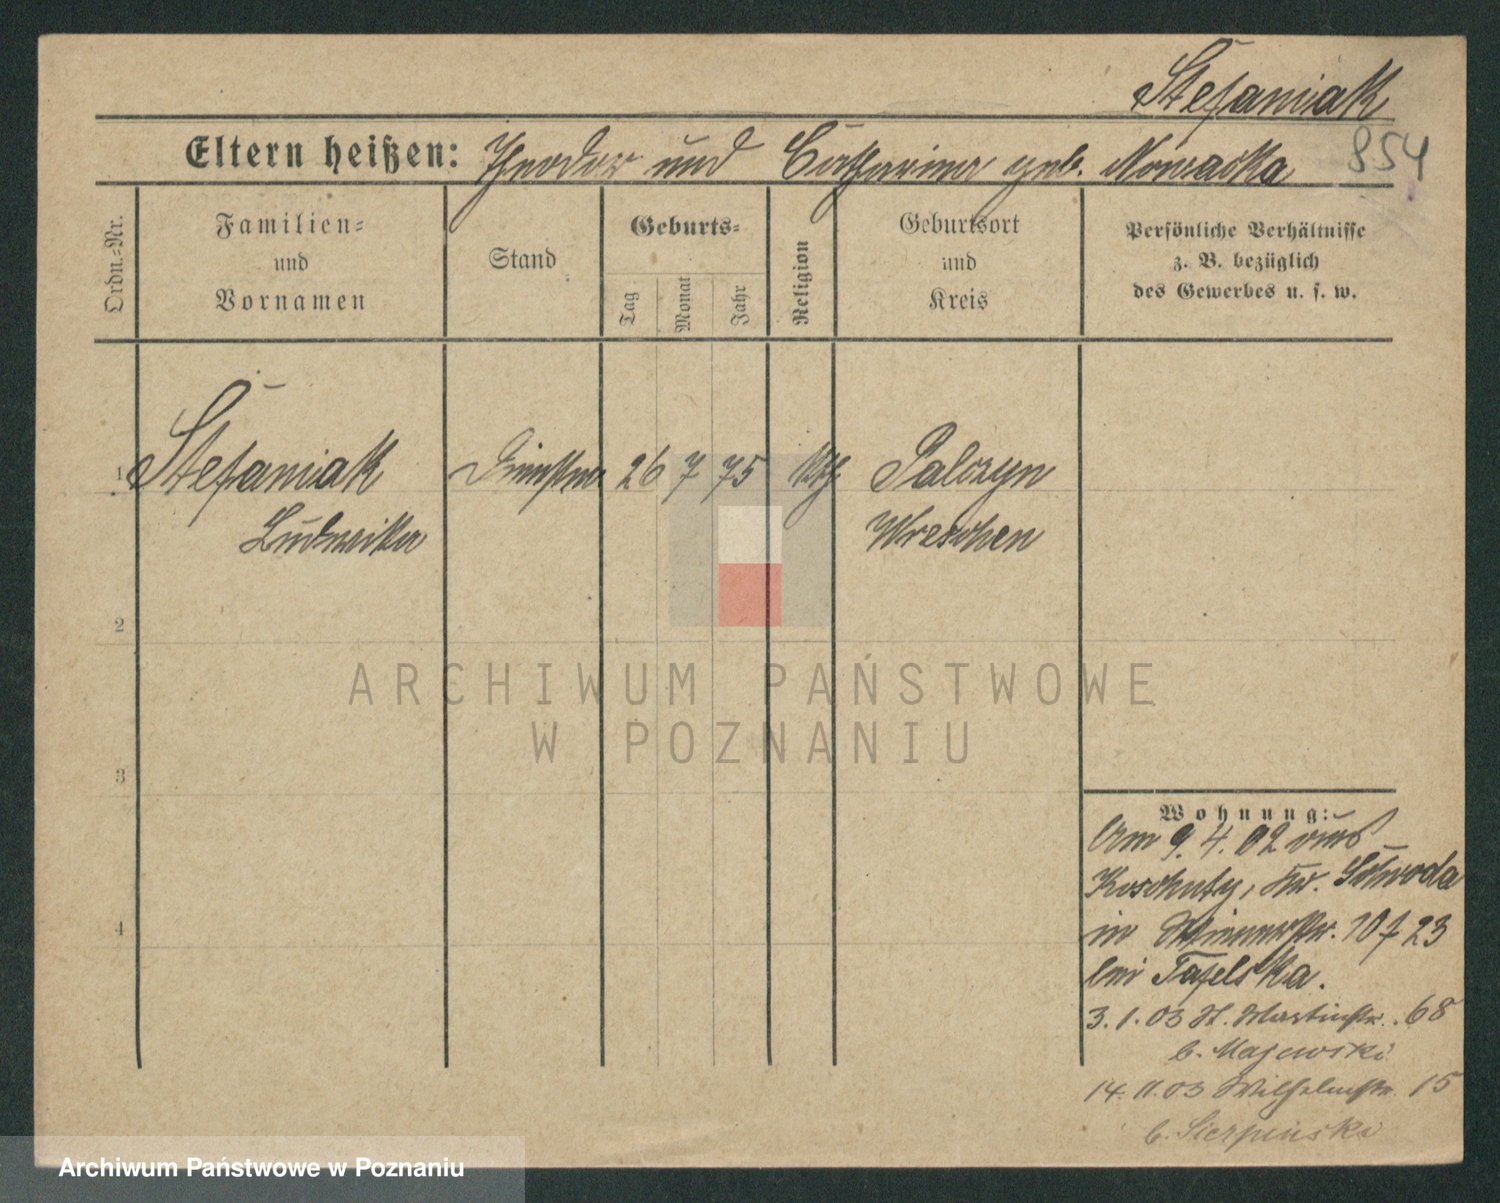 Stefaniak
854
Eltern heißen: Theodor und Catharina geb. Nowacka
Ordn.-Nr.
Familien- und Vornamen
Stand
Geburts-
Tag
Monat
Jahr
Religion
Geburtsort und Kreis
Persönliche Verhältnisse z. B. bezüglich des Gewerbes u. s. w.
1 Stefaniak 26 7 75 kth Palczyn
Ludwika Wreschen
2
3
4
ARCHIWUM PAŃSTWOWE
W POZNANIU
Wohnung:
Am 9. 4. 02 aus
Koschuty, Kr. Schroda
in 10 f 23
bei Tafelska.
3. 1. 03 St. Martinstr. 68
b. Majewski
14. 11. 03 Wilhelmstr. 15
b. Sierpinski
Archiwum Państwowe w Poznaniu